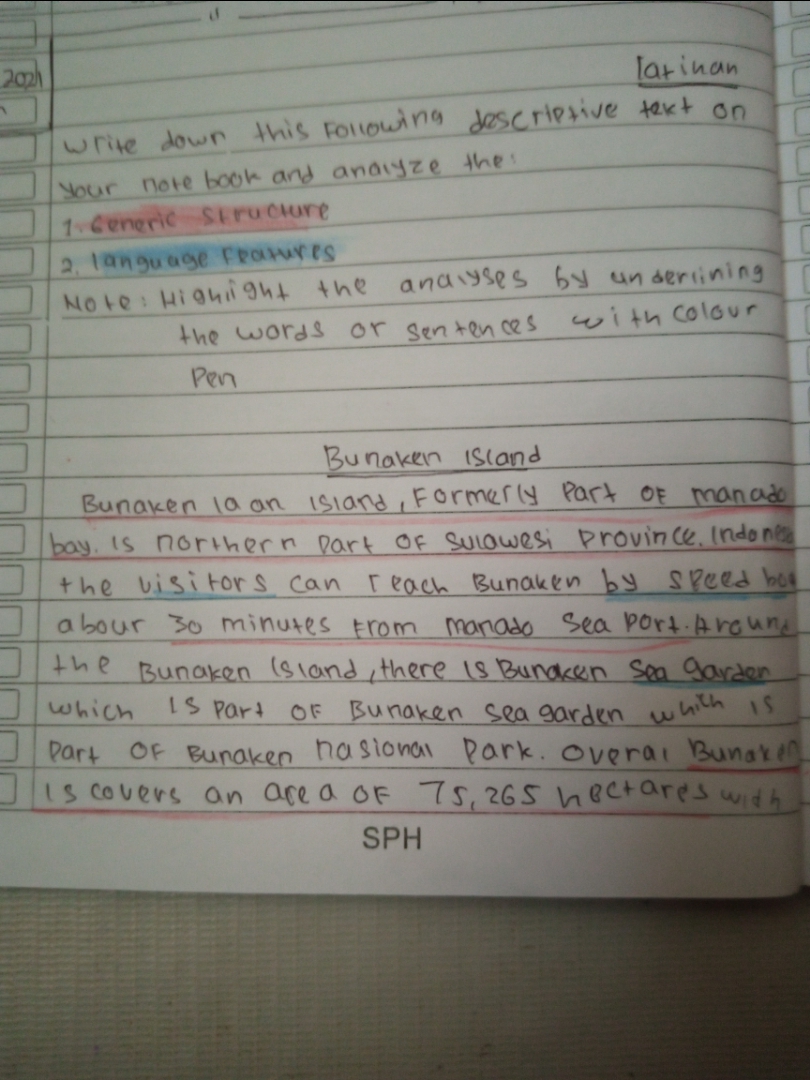 2021
latihan
Write down this Following descriptive text on
your note book and analyze the:
1. Generic Structure
2. language Features
Note: Highlight the analyses by underlining
the words or sentences with colour
Pen
Bunaken Island
Bunaken Ia an Island, Formerly Part OF manado
bay. Is northern part OF Sulawesi Province. Indones
the visitors can reach Bunaken by speed boa
abour 30 minutes From manado Sea Port. Around
the Bunaken Island, there Is Bunaken Sea garden
which Is Part OF Bunaken sea garden which is
Part OF Bunaken nasional Park. Overal Bunaken
Is covers an area OF 75,265 hectares with
SPH